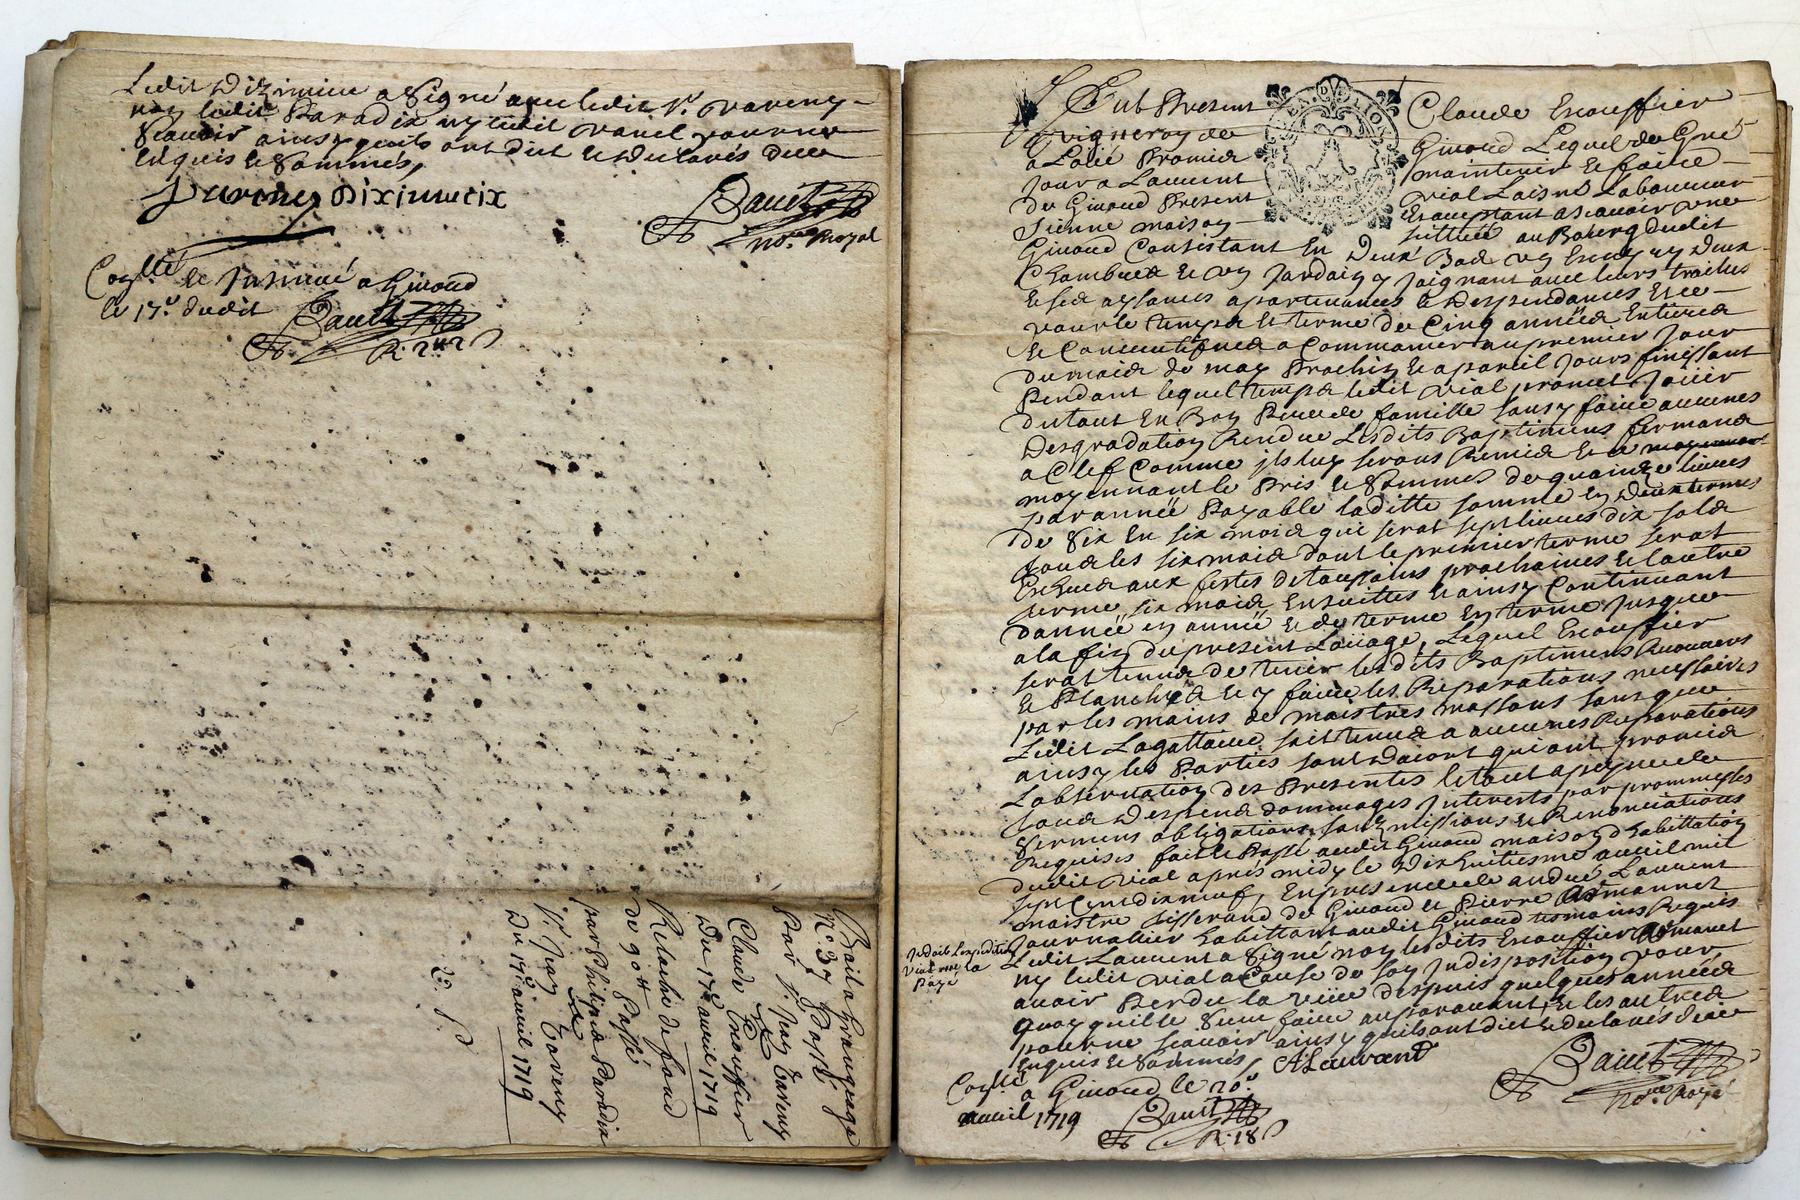 Ledit Diximieu a signé avec ledit Sr. Taverny
ny ledit Paradix ny ledit
scavoir ainsy quils ont dict et declarés deue
enquis et sommés,
Diximieux
Bauet
no.re Royal
Coll.é et Insinué a Givord
le 17.e dudit
Bauet
Bail a Grangeage
N.o 37 passé
Par S.r Jean Taverny
a
Claude Encouffier
Du 17.e avril 1719
Relasche de fond
de 90 tt passé
par Philip Paradix
a
S.r Jean Taverny
Du 17.e avril 1719
Fut Present Claude Encouffier
vigneron de Givord Lequel de Gré
a Loué Promis maintenir et faire
Jouir a Laurent Vial Laisné Laboureur
de Givord Present Et acceptant a scavoir une
sienne maison scittuée au Bourg dudit
Givord Consistant En Deux Bas un Encuy Deux
Chambres et un Jardain y Joignant avec leurs
et ses aysances apartenances et Despendances Et ce
pour le temps et terme de Cinq années Entieres
et Consecutifves a Commancer au premier Jour
du mois de may Prochin et a pareil Jours finissant
Pendant lequel temps ledit Vial promet Joüir
du tout En Bon Pere de famille sans y faire aucunes
Desgradation Rendre Lesdits Baptimens fermans
a Clef Comme ils luy serons Remis Et a
moyennant le Pris et sommes de quainze livres
par année Payable laditte somme en deux termes
de six En six mois qui serat sept livres dix sols
tous les six mois dont le premier terme serat
Escheu aux festes de Toussains prochaines et lautre
terme six mois Ensuittes et ainsy Continuant
dannée en année et de terme En terme Jusques
a la fin du present Loüage, Lequel Encouffier
serat tenus de tenir lesdits Baptimens Recouvers
et Planchés et y faire les Reparations necessaires
par les mains de maistres massons sans que
Ledit Lagattaire soit tenus a aucunes Reparations
ainsy les Parties sont Dacort qui ont promis
Lobservation des Presentes le tout a peyne de
tous Despens dommages Interests par promesses
sermens obligations soubzmissions et Renonciations
Requises fait et Passé audit Givord maison dhabittation
dudit Vial apres midy le Dix huitiesme avril mil
sept Cent dix neuf, En presence de André Laurent
maistre tisserand de Givord et Pierre Armannet
Journalier habittant audit Givord tesmoins Requis
Ledit Laurent a signé non lesdits Encouffier Armanet
ny ledit Vial a Cause de son Indisposition pour
avoir Perdu la veüe despuis quelques années
quoy quil le sceut faire auparavant, et les autres
pour ne scavoir ainsy quils ont dict et declarés deue
enquis et sommés,
Bauet
no.re Royal
A Laurand
Coll.é
a Givord le 20.e
avril 1719
Bauet
R. 18 s